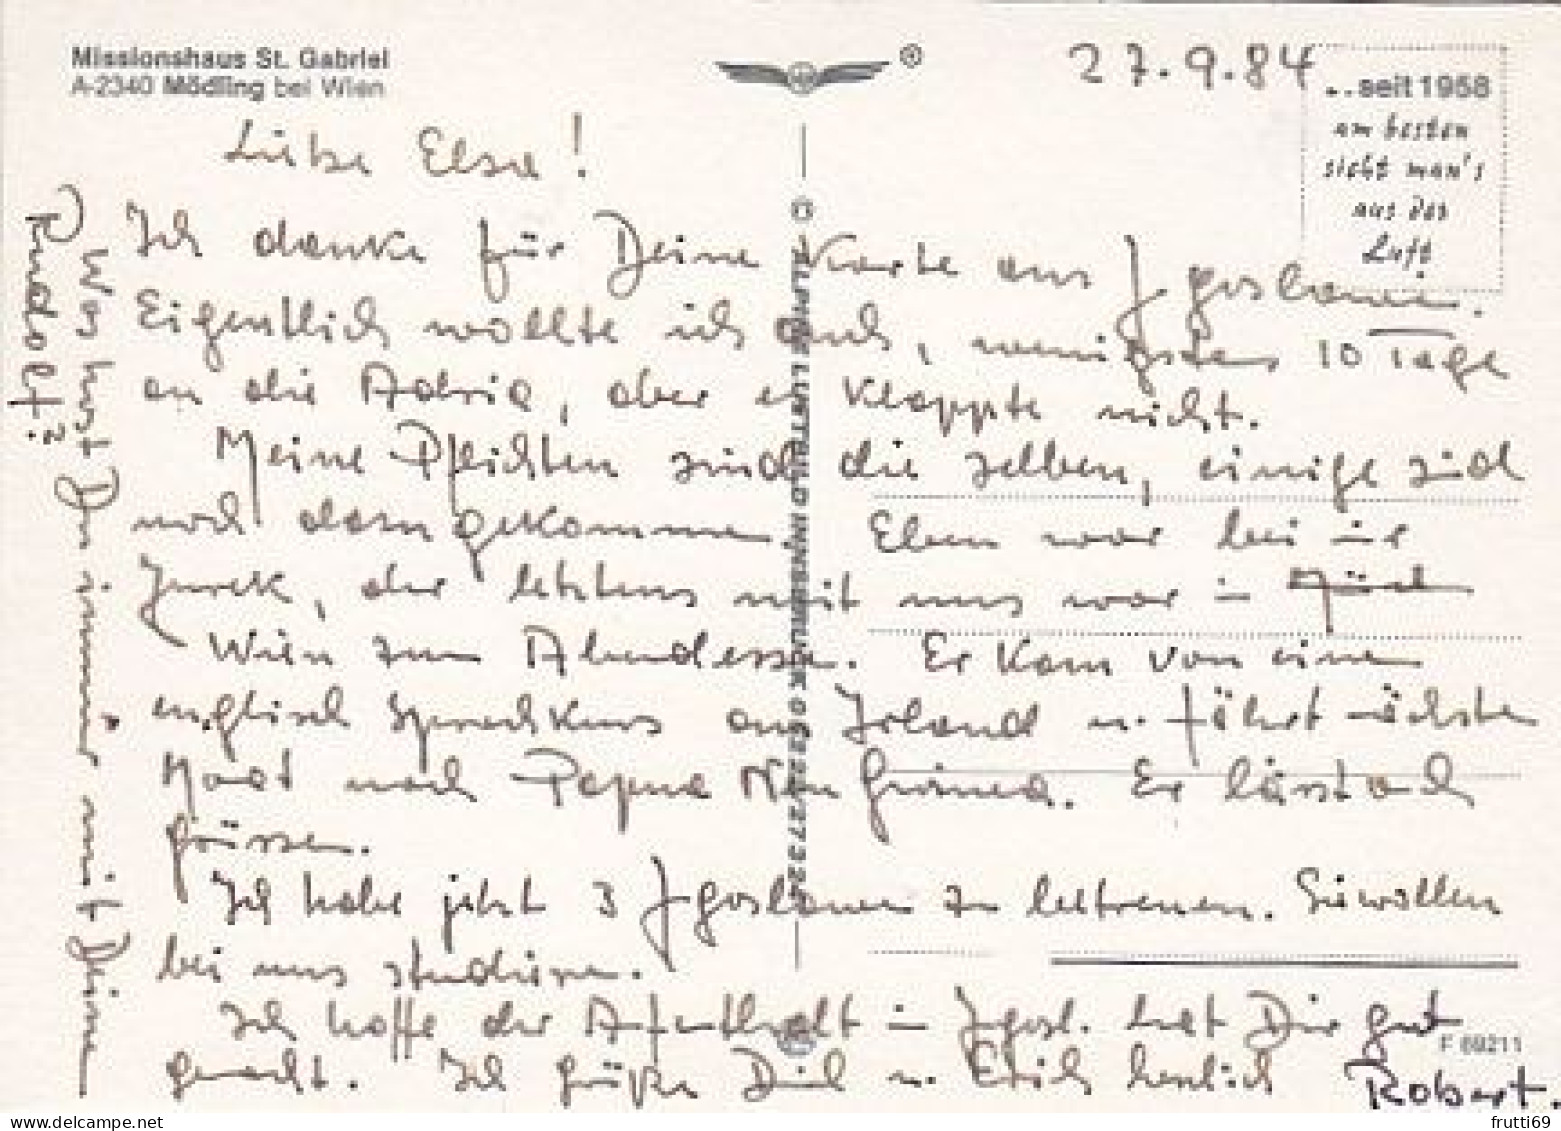 Missionshaus St. Gabriel
A-2340 Mödling bei Wien
27.9.84
...seit 1958
am besten
sieht man's
aus der
Luft
Liebe Elsa!
Ich danke für Deine Karte aus Jgoslawien.
Eigentlich wollte ich auch, wenigstens 10 Tage
an die Adria, aber es klappte nicht.
Meine Pflichten sind die selben, einige sind
noch dazu gekommen. Eben war bei mir
Jurek, der letztens mit uns war in
Wien zum Abendessen. Er kam von einem
englisch Sprachkurs aus Irland u. fährt nächsten
Monat nach Papua Neu Guinea. Er lässt auch
grüssen.
Ich habe jetzt 3 Jgoslawen zu betreuen. Sie wollen
bei uns studieren.
Ich hoffe der Aufenthalt in Jgosl. hat Dir gut
gemacht. Ich grüße Dich u. Erich herzlich
Robert.
Was hast Du immer mit Deinem
Rudolf?
ALPINE LUFTBILD INNSBRUCK 05222/27322
F 69211
frutti69